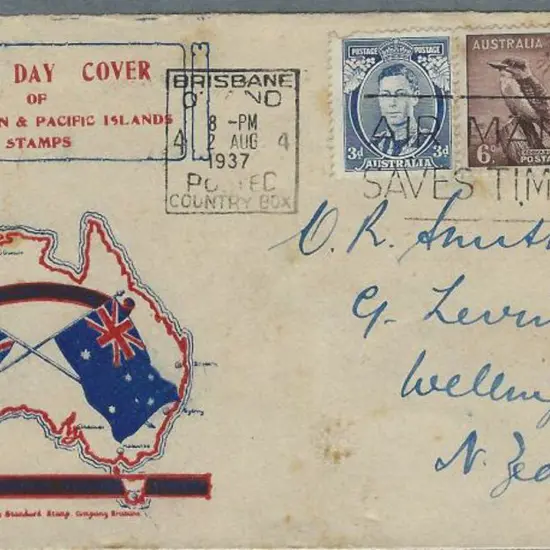 DAY COVER
OF
N & PACIFIC ISLANDS
STAMPS
BRISBANE
8 -PM
4 2 AUG 4
1937
POSTED
COUNTRY BOX
POSTAGE POSTAGE
3d 3d
AUSTRALIA
AUSTRALIA
6D
POSTAGE
AIR MAI
SAVES TIM
O. R. Smith
G. Levin
Welling
N. Zea
Sydney
Standard Stamp Company Brisbane